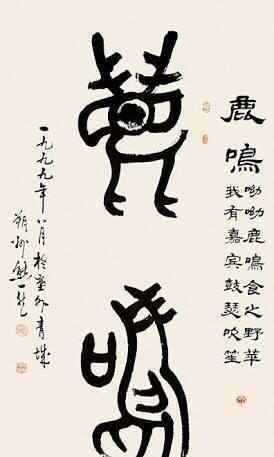 鹿鳴
呦呦鹿鳴食之野苹
我有嘉宾鼓瑟吹笙
鹿鳴
一九九九年八月於塞外青城
朔州